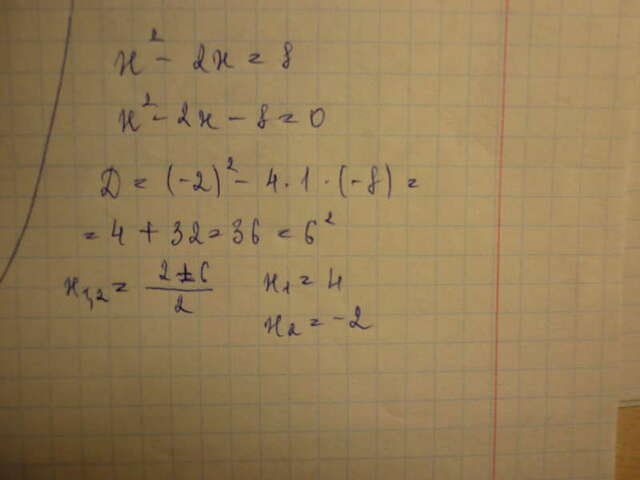 x² - 2x = 8
x² - 2x - 8 = 0
D = (-2)² - 4 · 1 · (-8) =
= 4 + 32 = 36 = 6²
x₁,₂ = (2 ± 6)/2   x₁ = 4
x₂ = -2